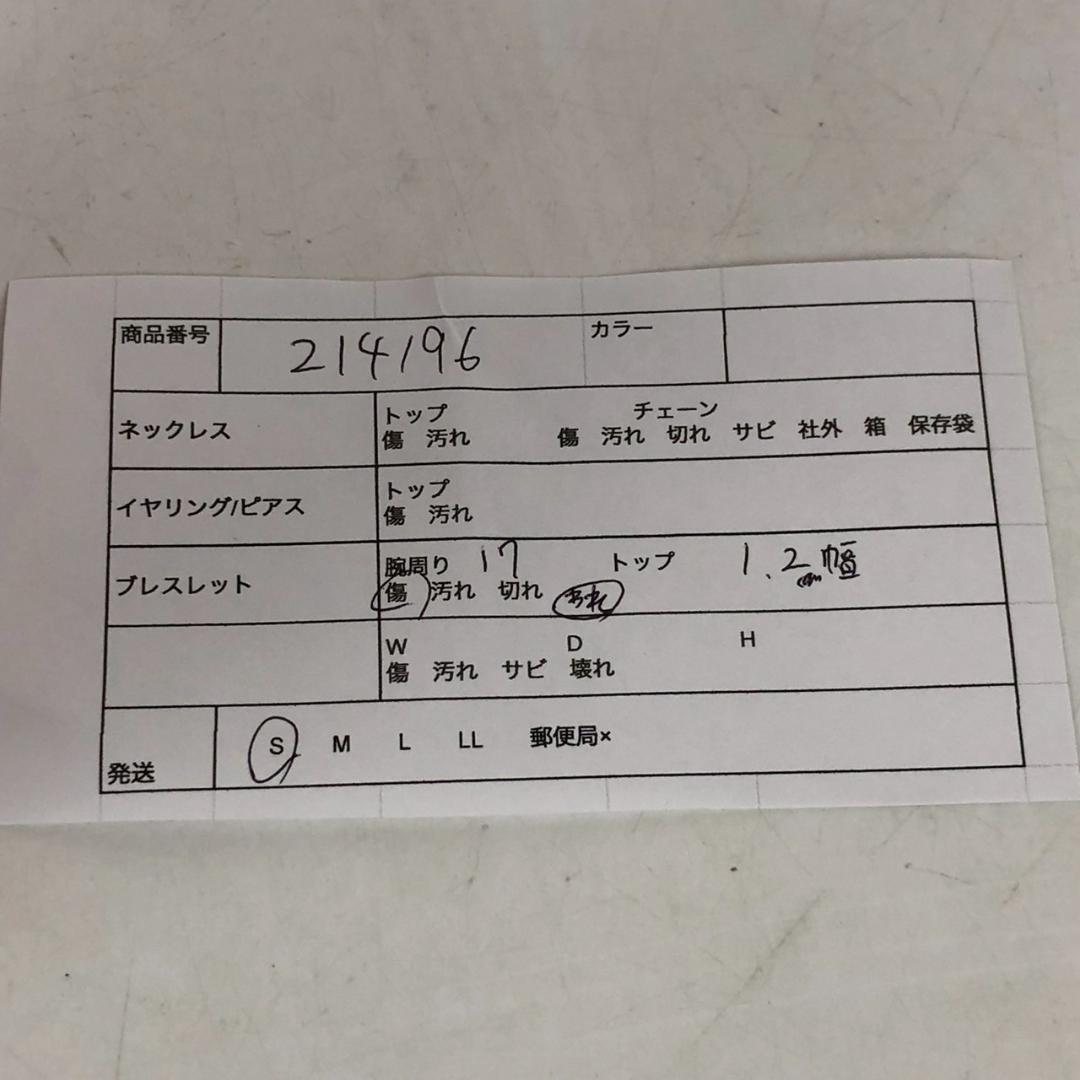 商品番号 214196 カラー
ネックレス
トップ チェーン
傷 汚れ 傷 汚れ 切れ サビ 社外 箱 保存袋
イヤリング/ピアス
トップ
傷 汚れ
ブレスレット
腕周り 17 トップ 1.2cm幅
傷 汚れ 切れ
W D H
傷 汚れ サビ 壊れ
発送 S M L LL 郵便局×